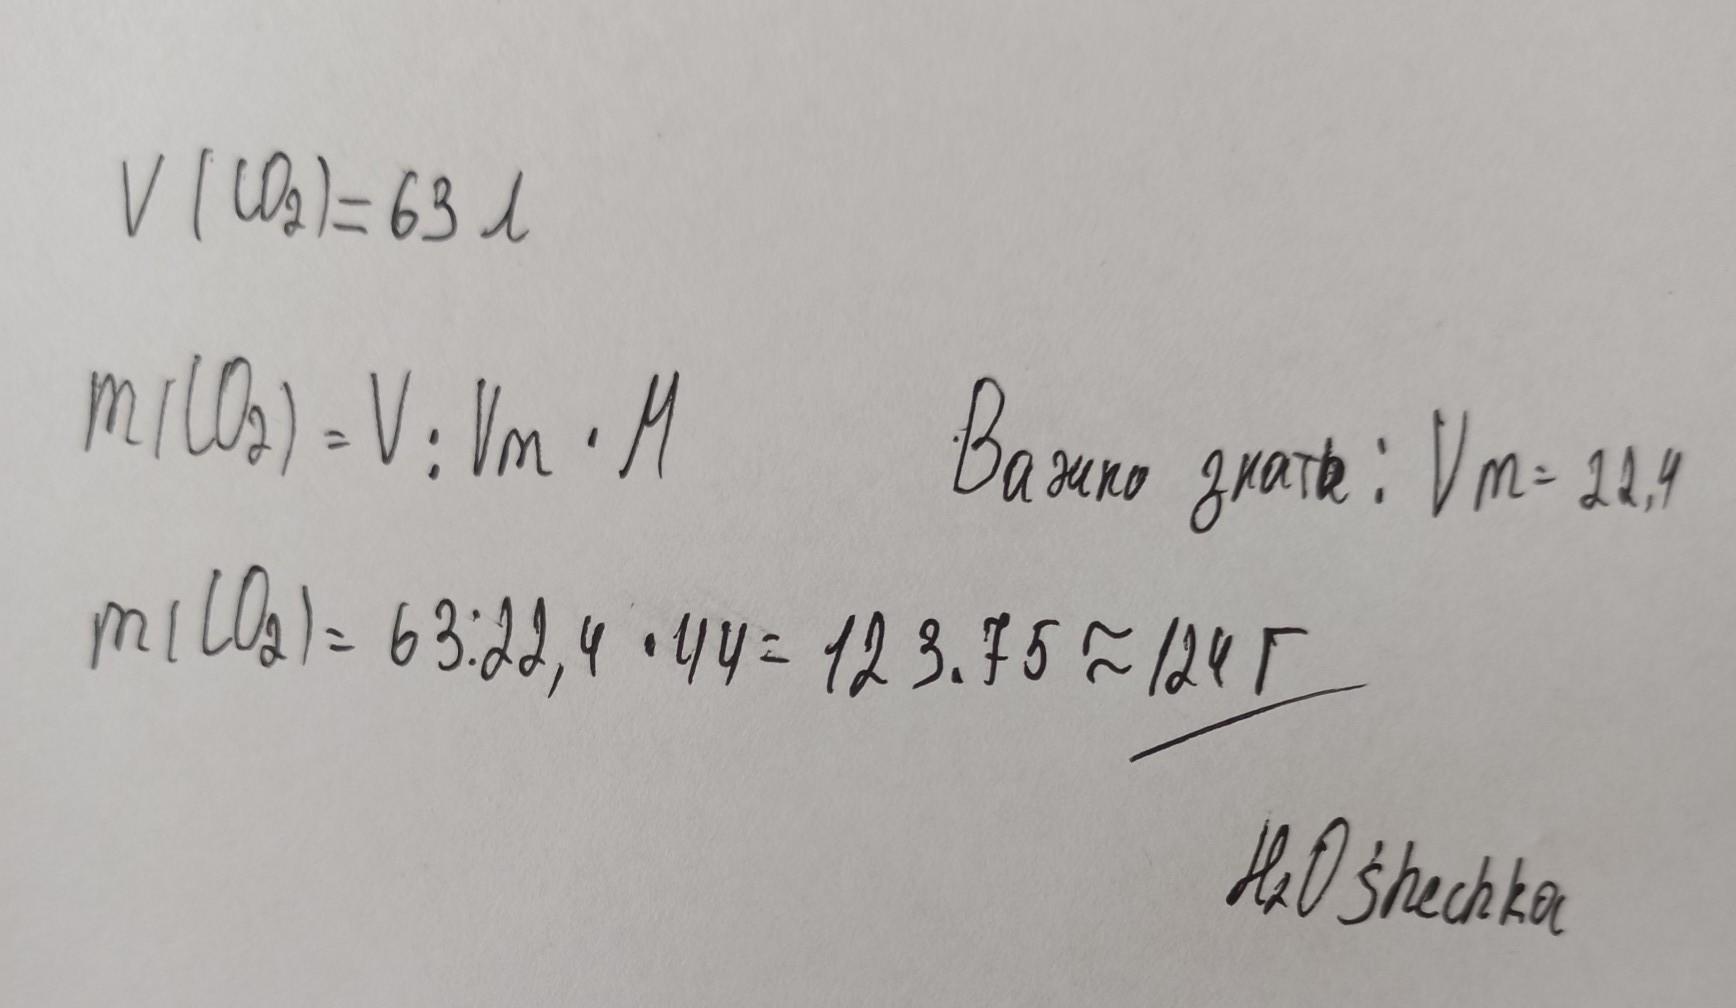 V(CO₂)=63 л
m(CO₂) = V : Vm · M
Важно знать: Vm = 22,4
m(CO₂) = 63:22,4 · 44 = 123.75 ≈ 124 г
H₂Oshechka